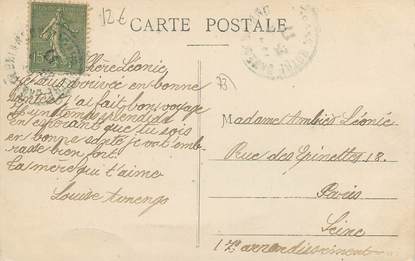 12€
CARTE POSTALE
15
Chère Léonie
je suis arrivée en bonne
santé et j'ai fait bon voyage
et un temps splendide
en espérant que tu sois
en bonne santé je vait emb-
rasse bien fort.
ta mère qui t'aime
Louise
Madame Léonie
Rue des Epinettes 18.
Paris
Seine
17e arrondissement